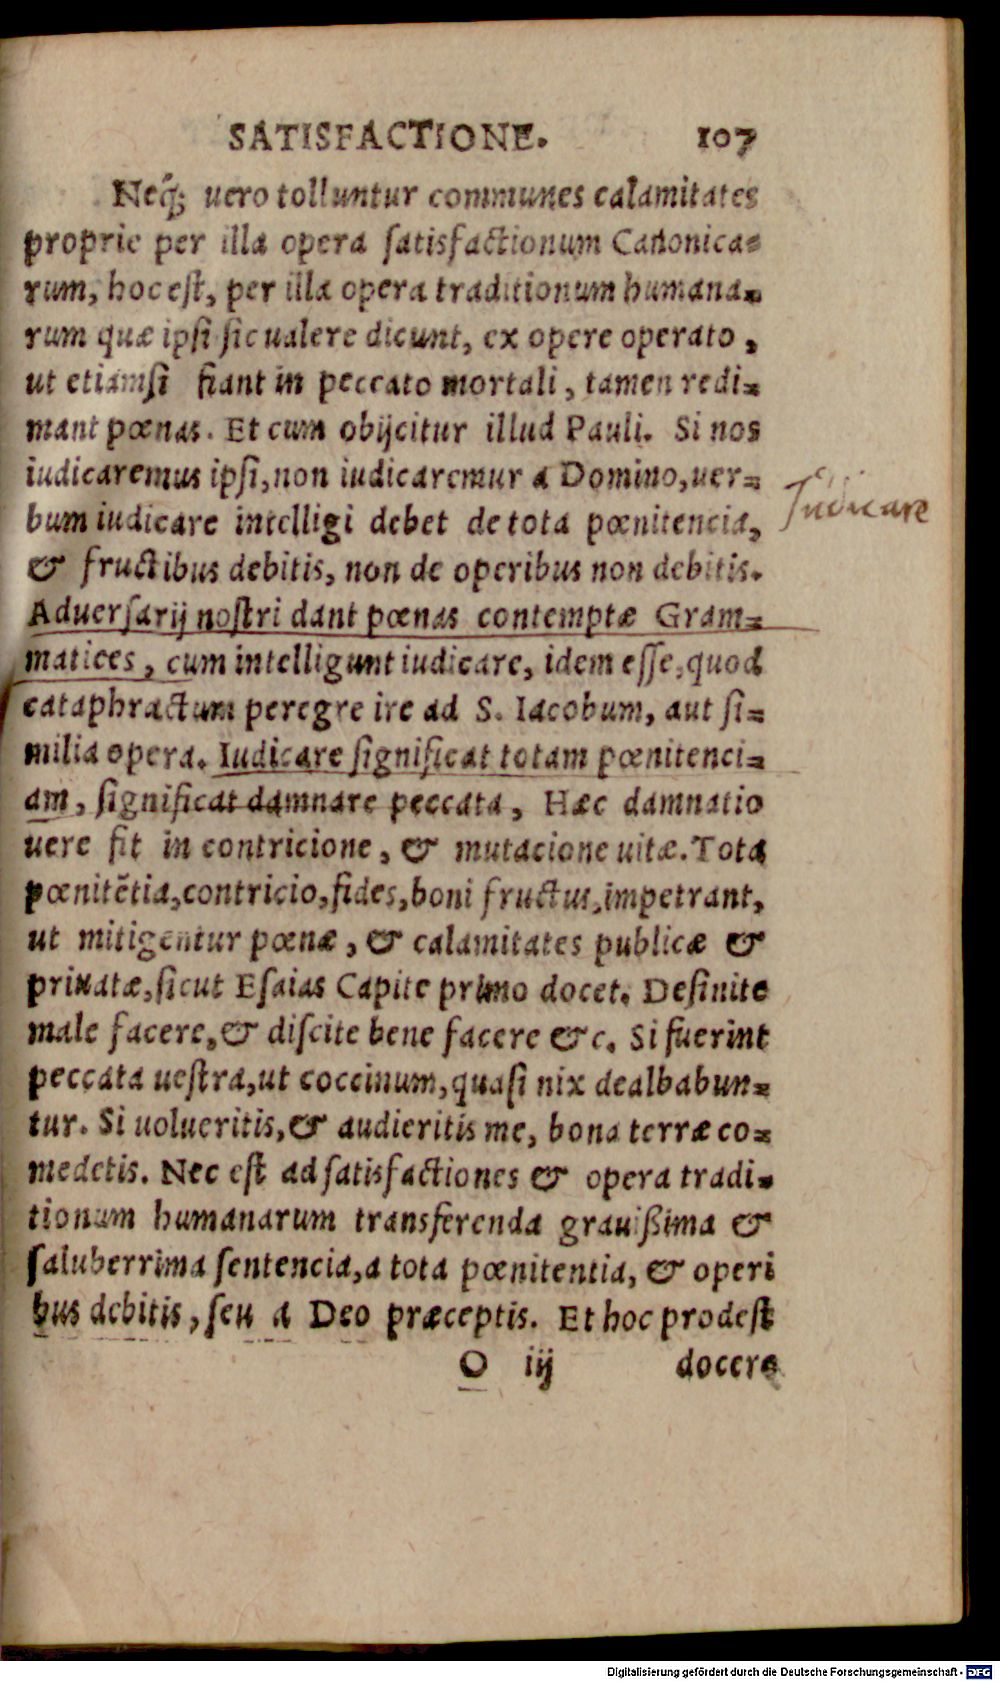 SATISFACTIONE. 107
Neq́; uero tolluntur communes calamitates
proprie per illa opera ſatisfactionum Canonica⸗
rum, hoc eſt, per illa opera traditionum humana⸗
rum quæ ipſi ſic ualere dicunt, ex opere operato,
ut etiamſi fiant in peccato mortali, tamen redi⸗
mant pœnas. Et cum obijcitur illud Pauli. Si nos
iudicaremus ipſi, non iudicaremur a Domino, uer⸗
bum iudicare intelligi debet de tota pœnitencia,
Judicare
& fructibus debitis, non de operibus non debitis.
Aduerſarij noſtri dant pœnas contemptæ Gram⸗
matices, cum intelligunt iudicare, idem eſſe, quod
cataphractum peregre ire ad S. Iacobum, aut ſi⸗
milia opera. Iudicare ſignificat totam pœnitenci⸗
am, ſignificat damnare peccata, Hæc damnatio
uere fit in contricione, & mutacione uitæ. Tota
pœnitẽtia, contricio, fides, boni fructus, impetrant,
ut mitigentur pœnæ, & calamitates publicæ &
priuatæ, ſicut Eſaias Capite primo docet. Deſinite
male facere, & diſcite bene facere &c. Si fuerint
peccata ueſtra, ut coccinum, quaſi nix dealbabun⸗
tur. Si uolueritis, & audieritis me, bona terræ co⸗
medetis. Nec eſt ad ſatisfactiones & opera tradi⸗
tionum humanarum transferenda grauißima &
ſaluberrima ſentencia, a tota pœnitentia, & operi
bus debitis, ſeu a Deo præceptis. Et hoc prodeſt
O iij docere
Digitalisierung gefördert durch die Deutsche Forschungsgemeinschaft - DFG